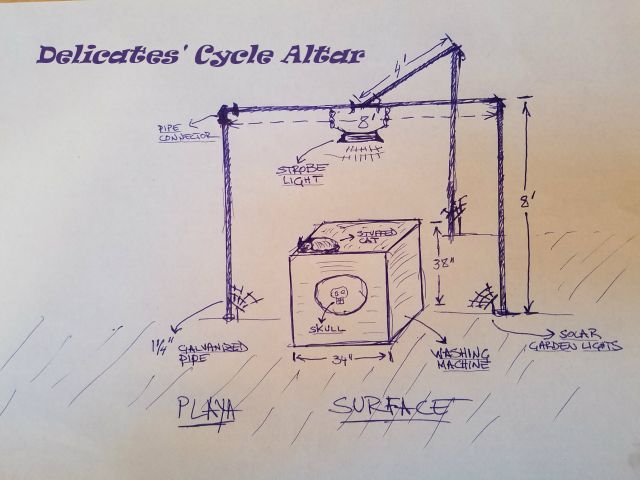 Delicates' Cycle Altar
4'
PIPE
CONNECTOR
8'
STROBE
LIGHT
8'
STUFFED
CAT
38"
SKULL
1 1/4" GALVANIZED
PIPE
34"
WASHING
MACHINE
SOLAR
GARDEN LIGHTS
PLAYA SURFACE